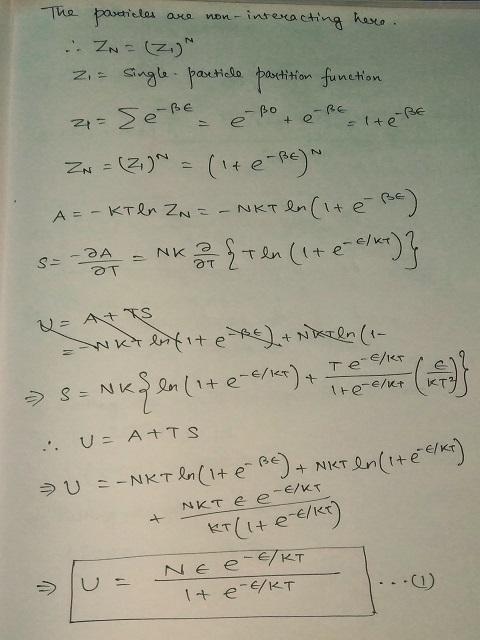 The particles are non-interacting here.
∴ Z_N = (Z_1)^N
Z_1 = Single-particle partition function
Z_1 = Σ e^{-βϵ} = e^{-β0} + e^{-βϵ} = 1 + e^{-βϵ}
Z_N = (Z_1)^N = (1 + e^{-βϵ})^N
A = -KT ln Z_N = -NKT ln(1 + e^{-βϵ})
S = -∂A/∂T = NK ∂/∂T {T ln(1 + e^{-ϵ/KT})}
U = A + TS
= -NKT ln(1 + e^{-βϵ}) + NKT ln(1-
⇒ S = NK{ln(1 + e^{-ϵ/KT}) + T e^{-ϵ/KT}/1+e^{-ϵ/KT} (ϵ/KT²)}
∴ U = A + TS
⇒ U = -NKT ln(1 + e^{-βϵ}) + NKT ln(1+e^{-ϵ/KT})
+ NKT ϵ e^{-ϵ/KT}/KT(1 + e^{-ϵ/KT})
⇒ U = Nϵ e^{-ϵ/KT}/1 + e^{-ϵ/KT} ....(1)